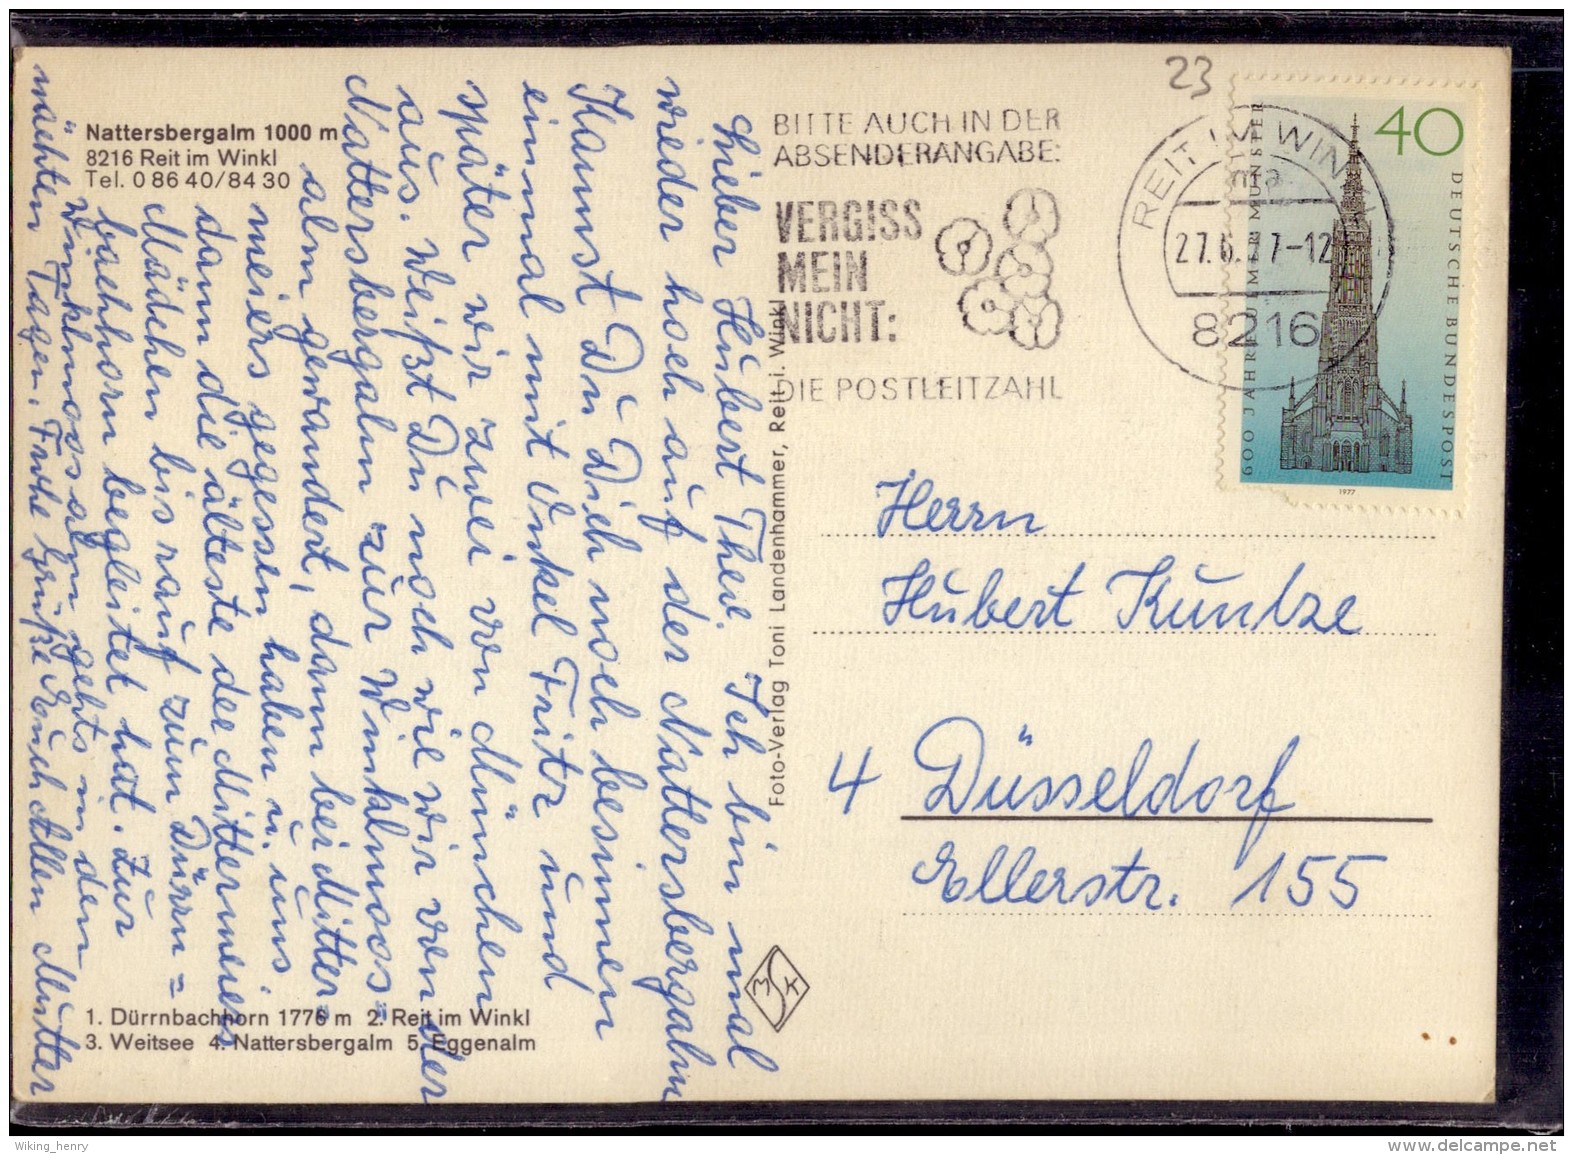 Nattersbergalm 1000 m
8216 Reit im Winkl
Tel. 0 86 40/84 30
Lieber Hubert Thei. Ich bin mal
wieder hoch auf der Nattersbergalm
Kannst Du Dich noch besinnen
einmal mit Onkel Fritz und
später wir zwei von München
aus. Weißt Du noch wie wir von der
Nattersbergalm zur Winklmoos-
alm gewandert, dann bei Mitter-
meiers gegessen haben u. uns
dann die älteste der Mittermeiers
Mädchen bis rauf zum Dürrn=
bachhorn begleitet hat. Zur
Winklmoosalm gehts in den
nächten Tagen. Frohe Grüße Euch Allen Mutter
1. Dürrnbachhorn 1776 m 2. Reit im Winkl
3. Weitsee 4. Nattersbergalm 5. Eggenalm
Foto-Verlag Toni Landenhammer, Reit i. Winkl
MSK
23
BITTE AUCH IN DER
ABSENDERANGABE:
VERGISS
MEIN
NICHT:
DIE POSTLEITZAHL
REIT IM WINKL
ma
27.6.77-12
8216
40
DEUTSCHE BUNDESPOST
600 JAHRE ULMER MÜNSTER
1977
Herrn
Hubert Kuntze
4 Düsseldorf
Ellerstr. 155
Wiking_henry
delcampe.net